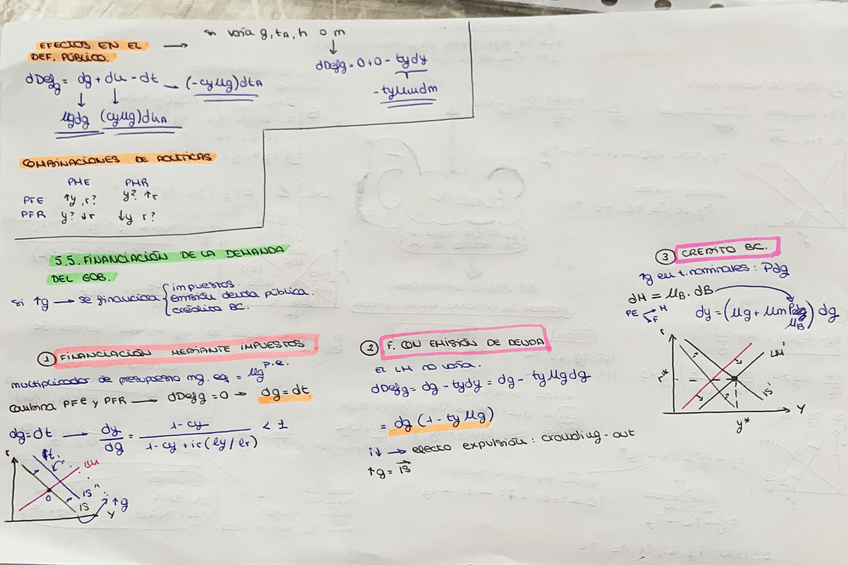 EFECTOS EN EL → si varía g, tA, h o m
DEF. PÚBLICO.
dDefg = dg + du - dt → (-cyμg)dtA
μgdg (cyμg)duA
↓
dDefg = 0+0 - tydy
- tyμmdm
COMBINACIONES DE POLITICAS
PME PMR
PFE ↑y, r? y? ↑r
PFR y? ↓r ↓y r?
5.5. FINANCIACIÓN DE LA DEMANDA
DEL GOB.
si ↑g → se financiosa { impuestos.
emisión deuda pública.
crédito BC.
① FINANCIACIÓN MEDIANTE IMPUESTOS
multiplicador de presupuesto mg. eq = μg p.e.
Combina PFE y PFR → dDefg = 0 → dg = dt
dg = dt → dy/dg = 1 - cy / 1 - cy + ir (ly / lr) < 1
r ↑t. LM
IS''
IS ↑g
0
Y
② F. CON EMISIÓN DE DEUDA
el LM no varía.
dDefg = dg - tydy = dg - tyμgdg
= dg (1 - tyμg)
i↓ → efecto expulsión: crowding-out
↑g = IS
③ CREDITO BC.
↑g en t. nominales: Pdg
dH = μB. dB
PE M
F
dy = (μg + μm P/μB) dg
r LM'
r*
IS'
y* Y